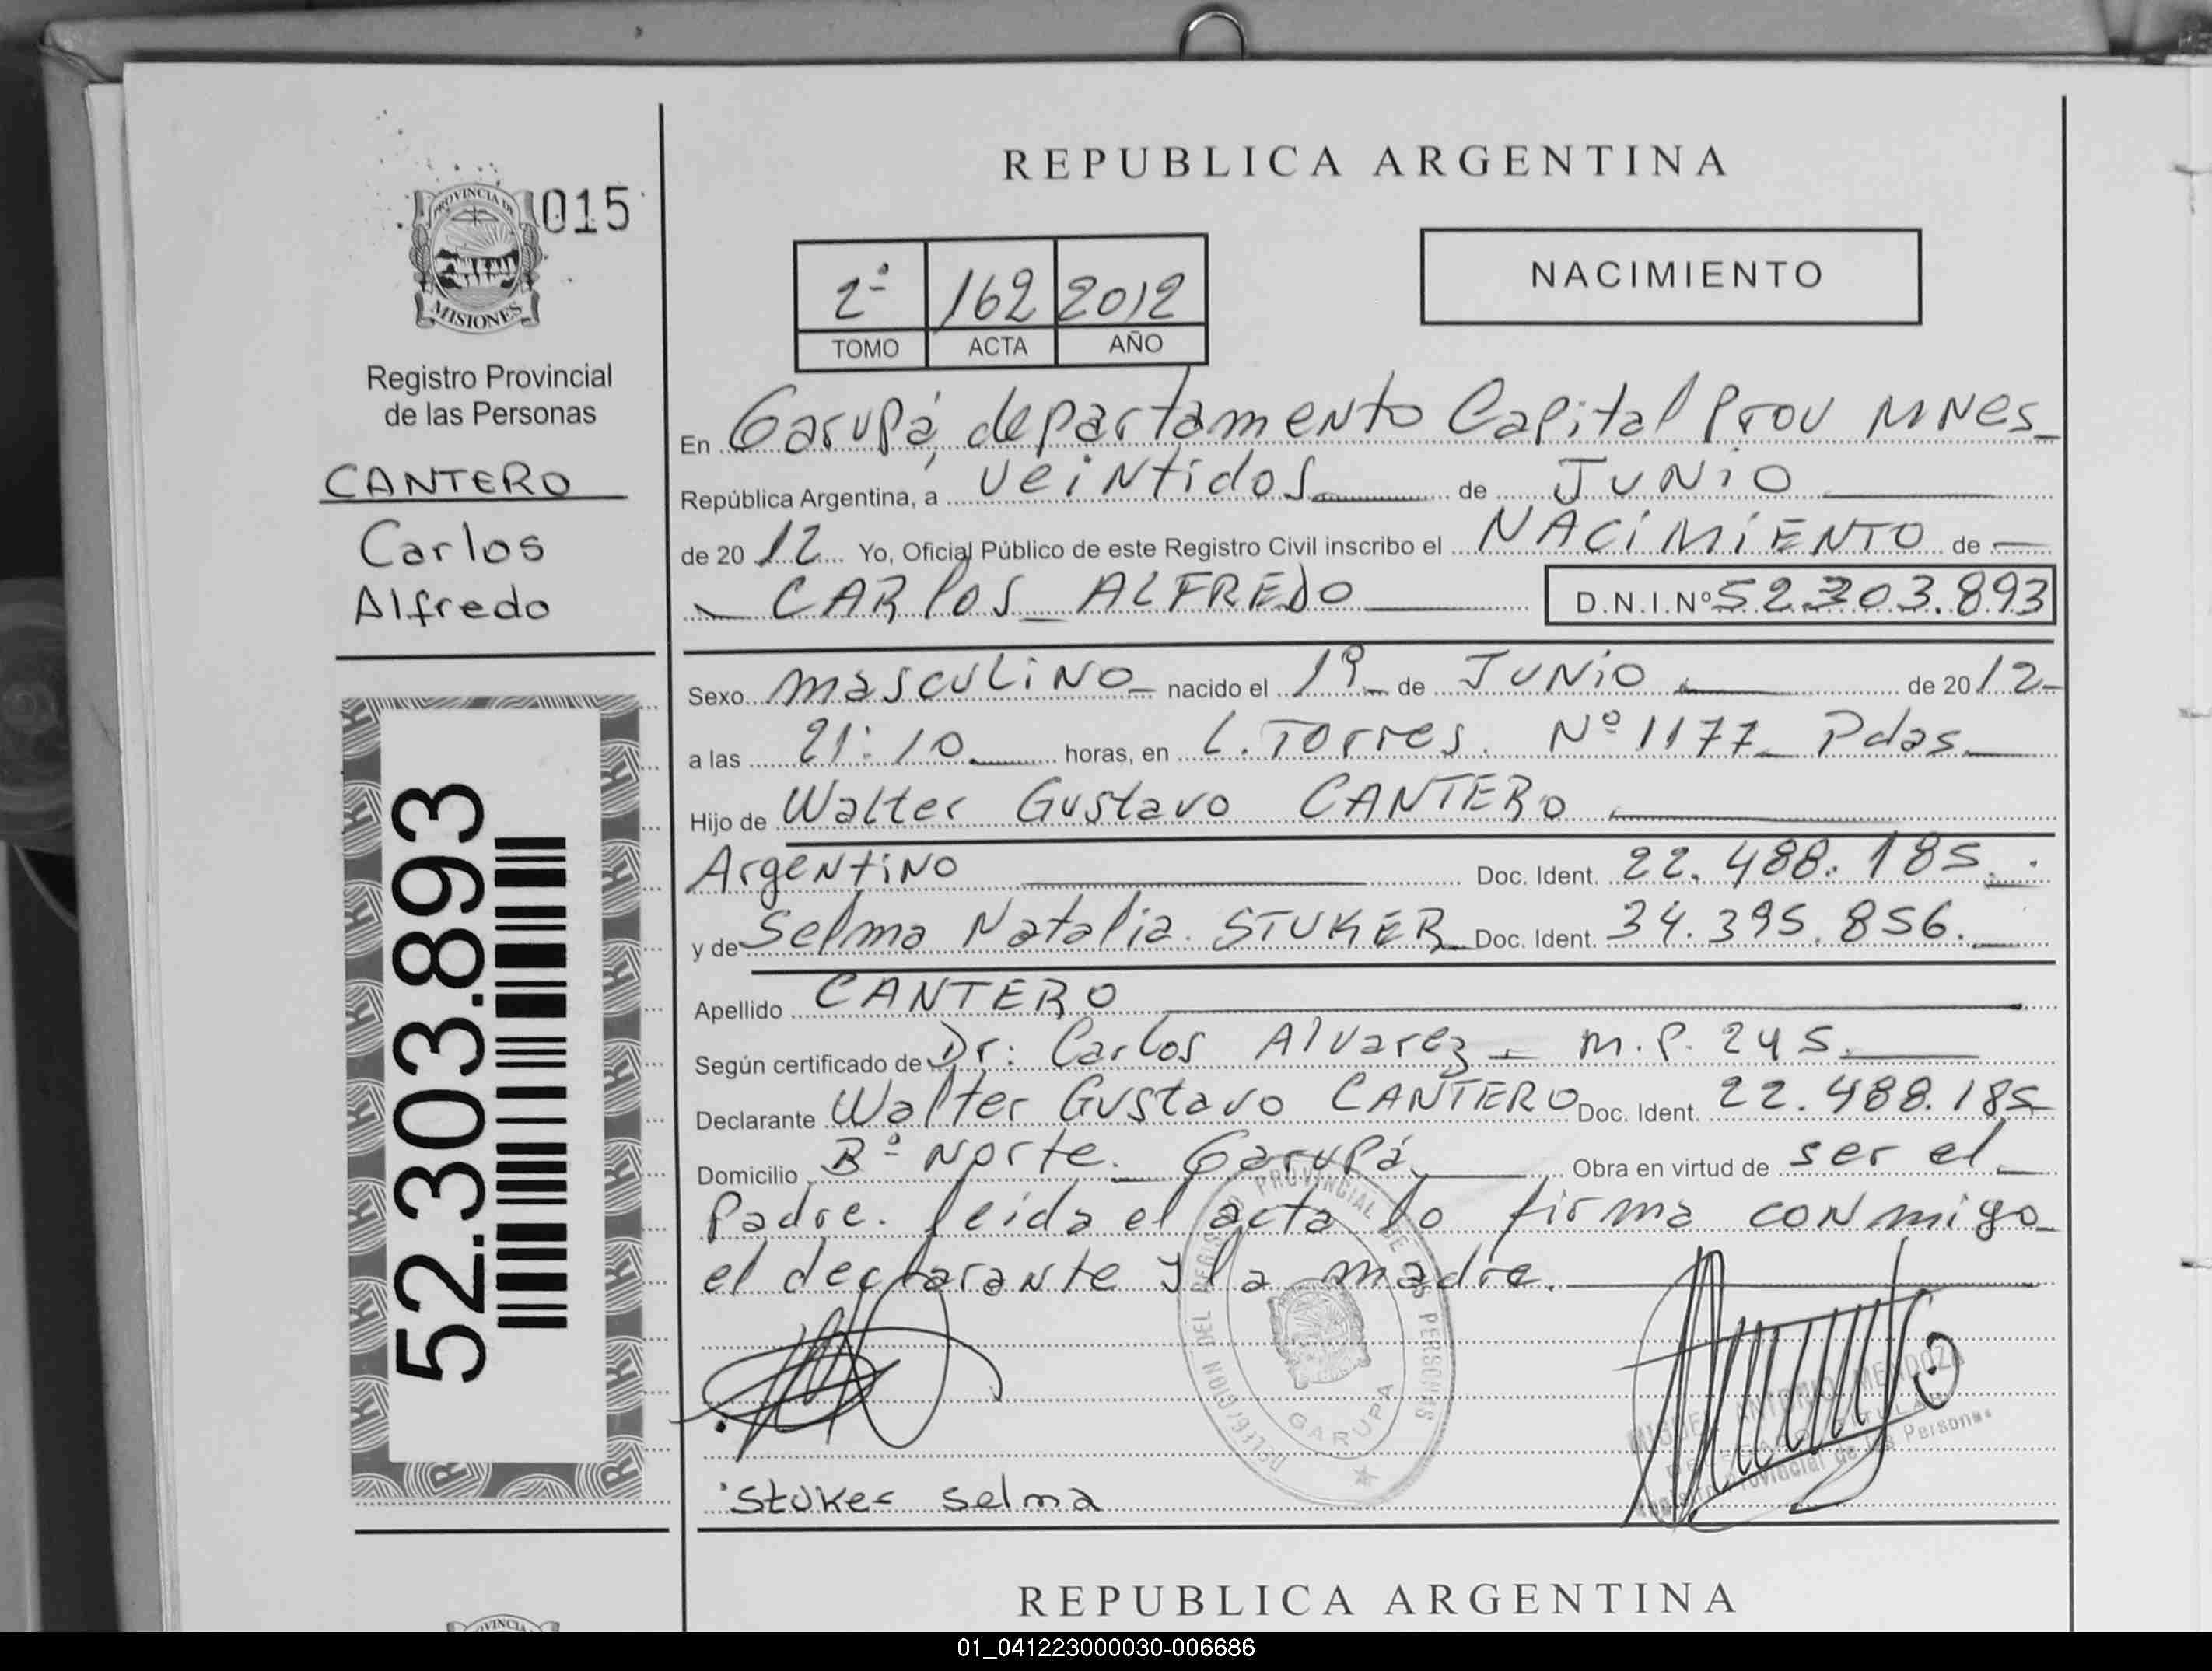 015
PROVINCIA DE
MISIONES
Registro Provincial
de las Personas
CANTERO
Carlos
Alfredo
52.303.893
REPUBLICA ARGENTINA
2º 162 2012
TOMO ACTA AÑO
NACIMIENTO
En Garupá, departamento Capital Prov MNes
República Argentina, a veintidos de JUNiO
de 20 12 Yo, Oficial Público de este Registro Civil inscribo el NACiMiENTO de
CARlOS ALFREDO D.N.I.Nº 52.303.893
Sexo masculiNO nacido el 19 de JUNiO de 20 12
a las 21:10 horas, en L. Torres. Nº 1177 Pdas
Hijo de Walter Gustavo CANTERO
ArgeNtiNO Doc. Ident. 22.488.185.
y de Selma Natalia. STUKER Doc. Ident. 34.395.856.
Apellido CANTERO
Según certificado de Dr: Carlos Alvarez - M.P. 245.
Declarante Walter Gustavo CANTERO Doc. Ident. 22.488.185
Domicilio Bº Norte. Garupá, Obra en virtud de ser el
Padre. leida el acta lo firma conmigo
el declarante y la madre.
DELEGACION DEL REGISTRO PROVINCIAL DE LAS PERSONAS
GARUPA
MIGUEL ANTONIO MENDOZA
Registro Provincial de las Personas
Stuker Selma
REPUBLICA ARGENTINA
01_041223000030-006686